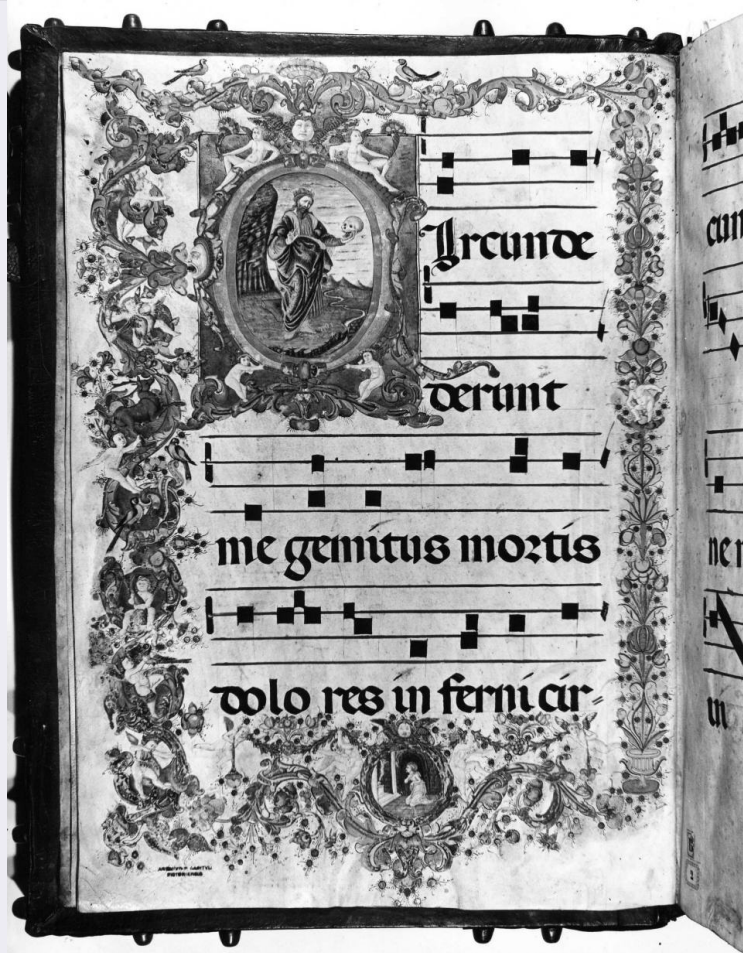 CIrcunde
derunt
me gemitus mortis
dolo res in ferni cir=
cun
ne
in